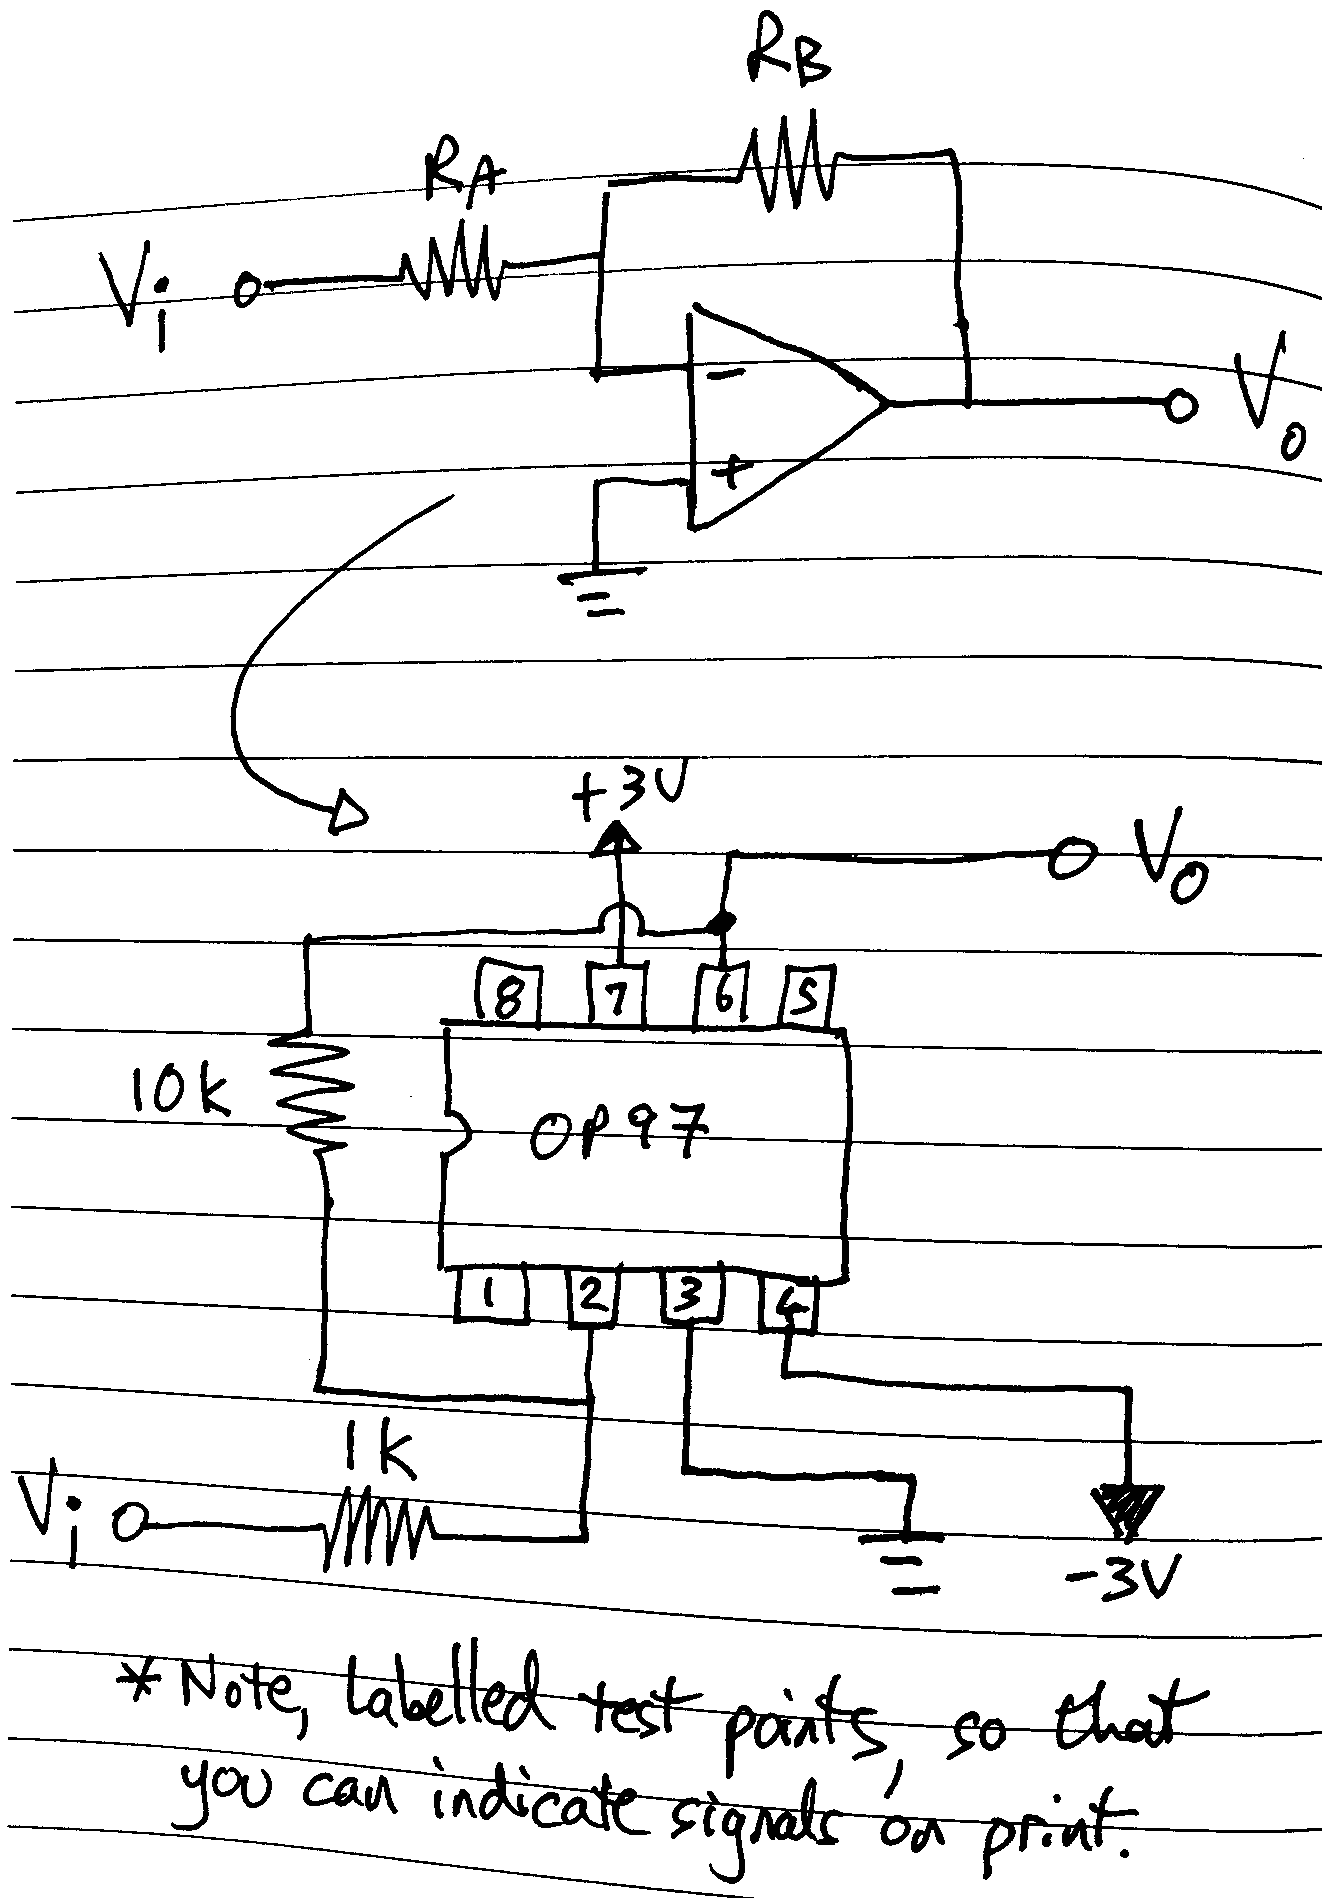 RB
RA
Vi
-
Vo
+
+3V
Vo
8 7 6 5
10k
OP97
1 2 3 4
1k
Vi
-3V
* Note, labelled test points, so that
you can indicate signals on print.